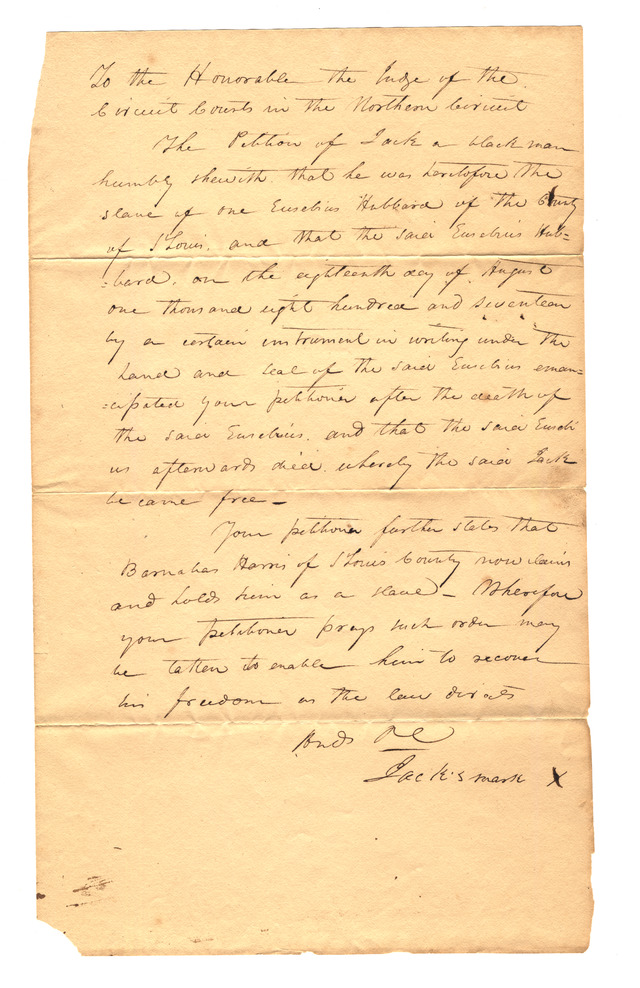 To the Honorable the Judge of the
Circuit Courts in the Northern Circuit
The Petition of Jack a black man
humbly sheweth that he was heretofore the
slave of one Eusebius Hubbard of the County
of S Louis. and that the said Eusebius Hub=
=bard. on the eighteenth day of August
one thousand eight hundred and seventeen
by a certain instrument in writing under the
hand and seal of the said Eusebius eman=
=cipated your petitioner after the death of
the said Eusebius. and that the said Eusebi
us afterwards died. whereby the said Jack
became free —
Your petitioner further states that
Barnabas Harris of S Louis County now claims
and holds him as a slave — Wherefore
your petitioner prays such order may
be tatten to enable him to recover
his freedom as the law directs
Jack's mark X